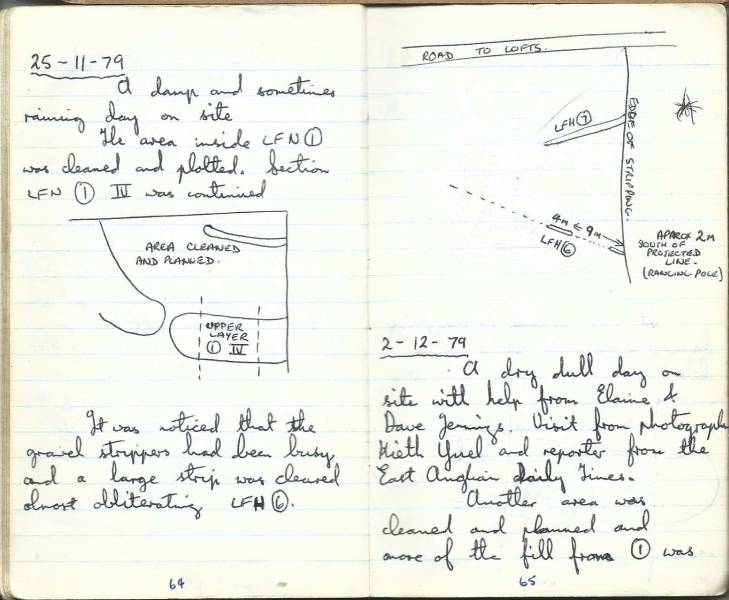 25-11-79
A damp and sometimes
raining day on site
The area inside LFN ①
was cleaned and plotted. Section
LFN ① IV was continued
AREA CLEANED
AND PLANNED.
UPPER
LAYER
① IV
It was noticed that the
gravel strippers had been busy
and a large strip was cleared
almost obliterating LFH ⑥.
64
ROAD TO LOFTS.
LFH ⑦
EDGE OF STRIPPING.
4M 9M
LFH ⑥
APAROX 2M
SOUTH OF
PROTECTED
LINE.
(RANGING POLE)
2-12-79
A dry dull day on
site with help from Elaine &
Dave Jennings. Visit from photograph
Kieth and reporter from the
East Anglian Daily Times.
Another area was
cleaned and planned and
more of the fill from ① was
65